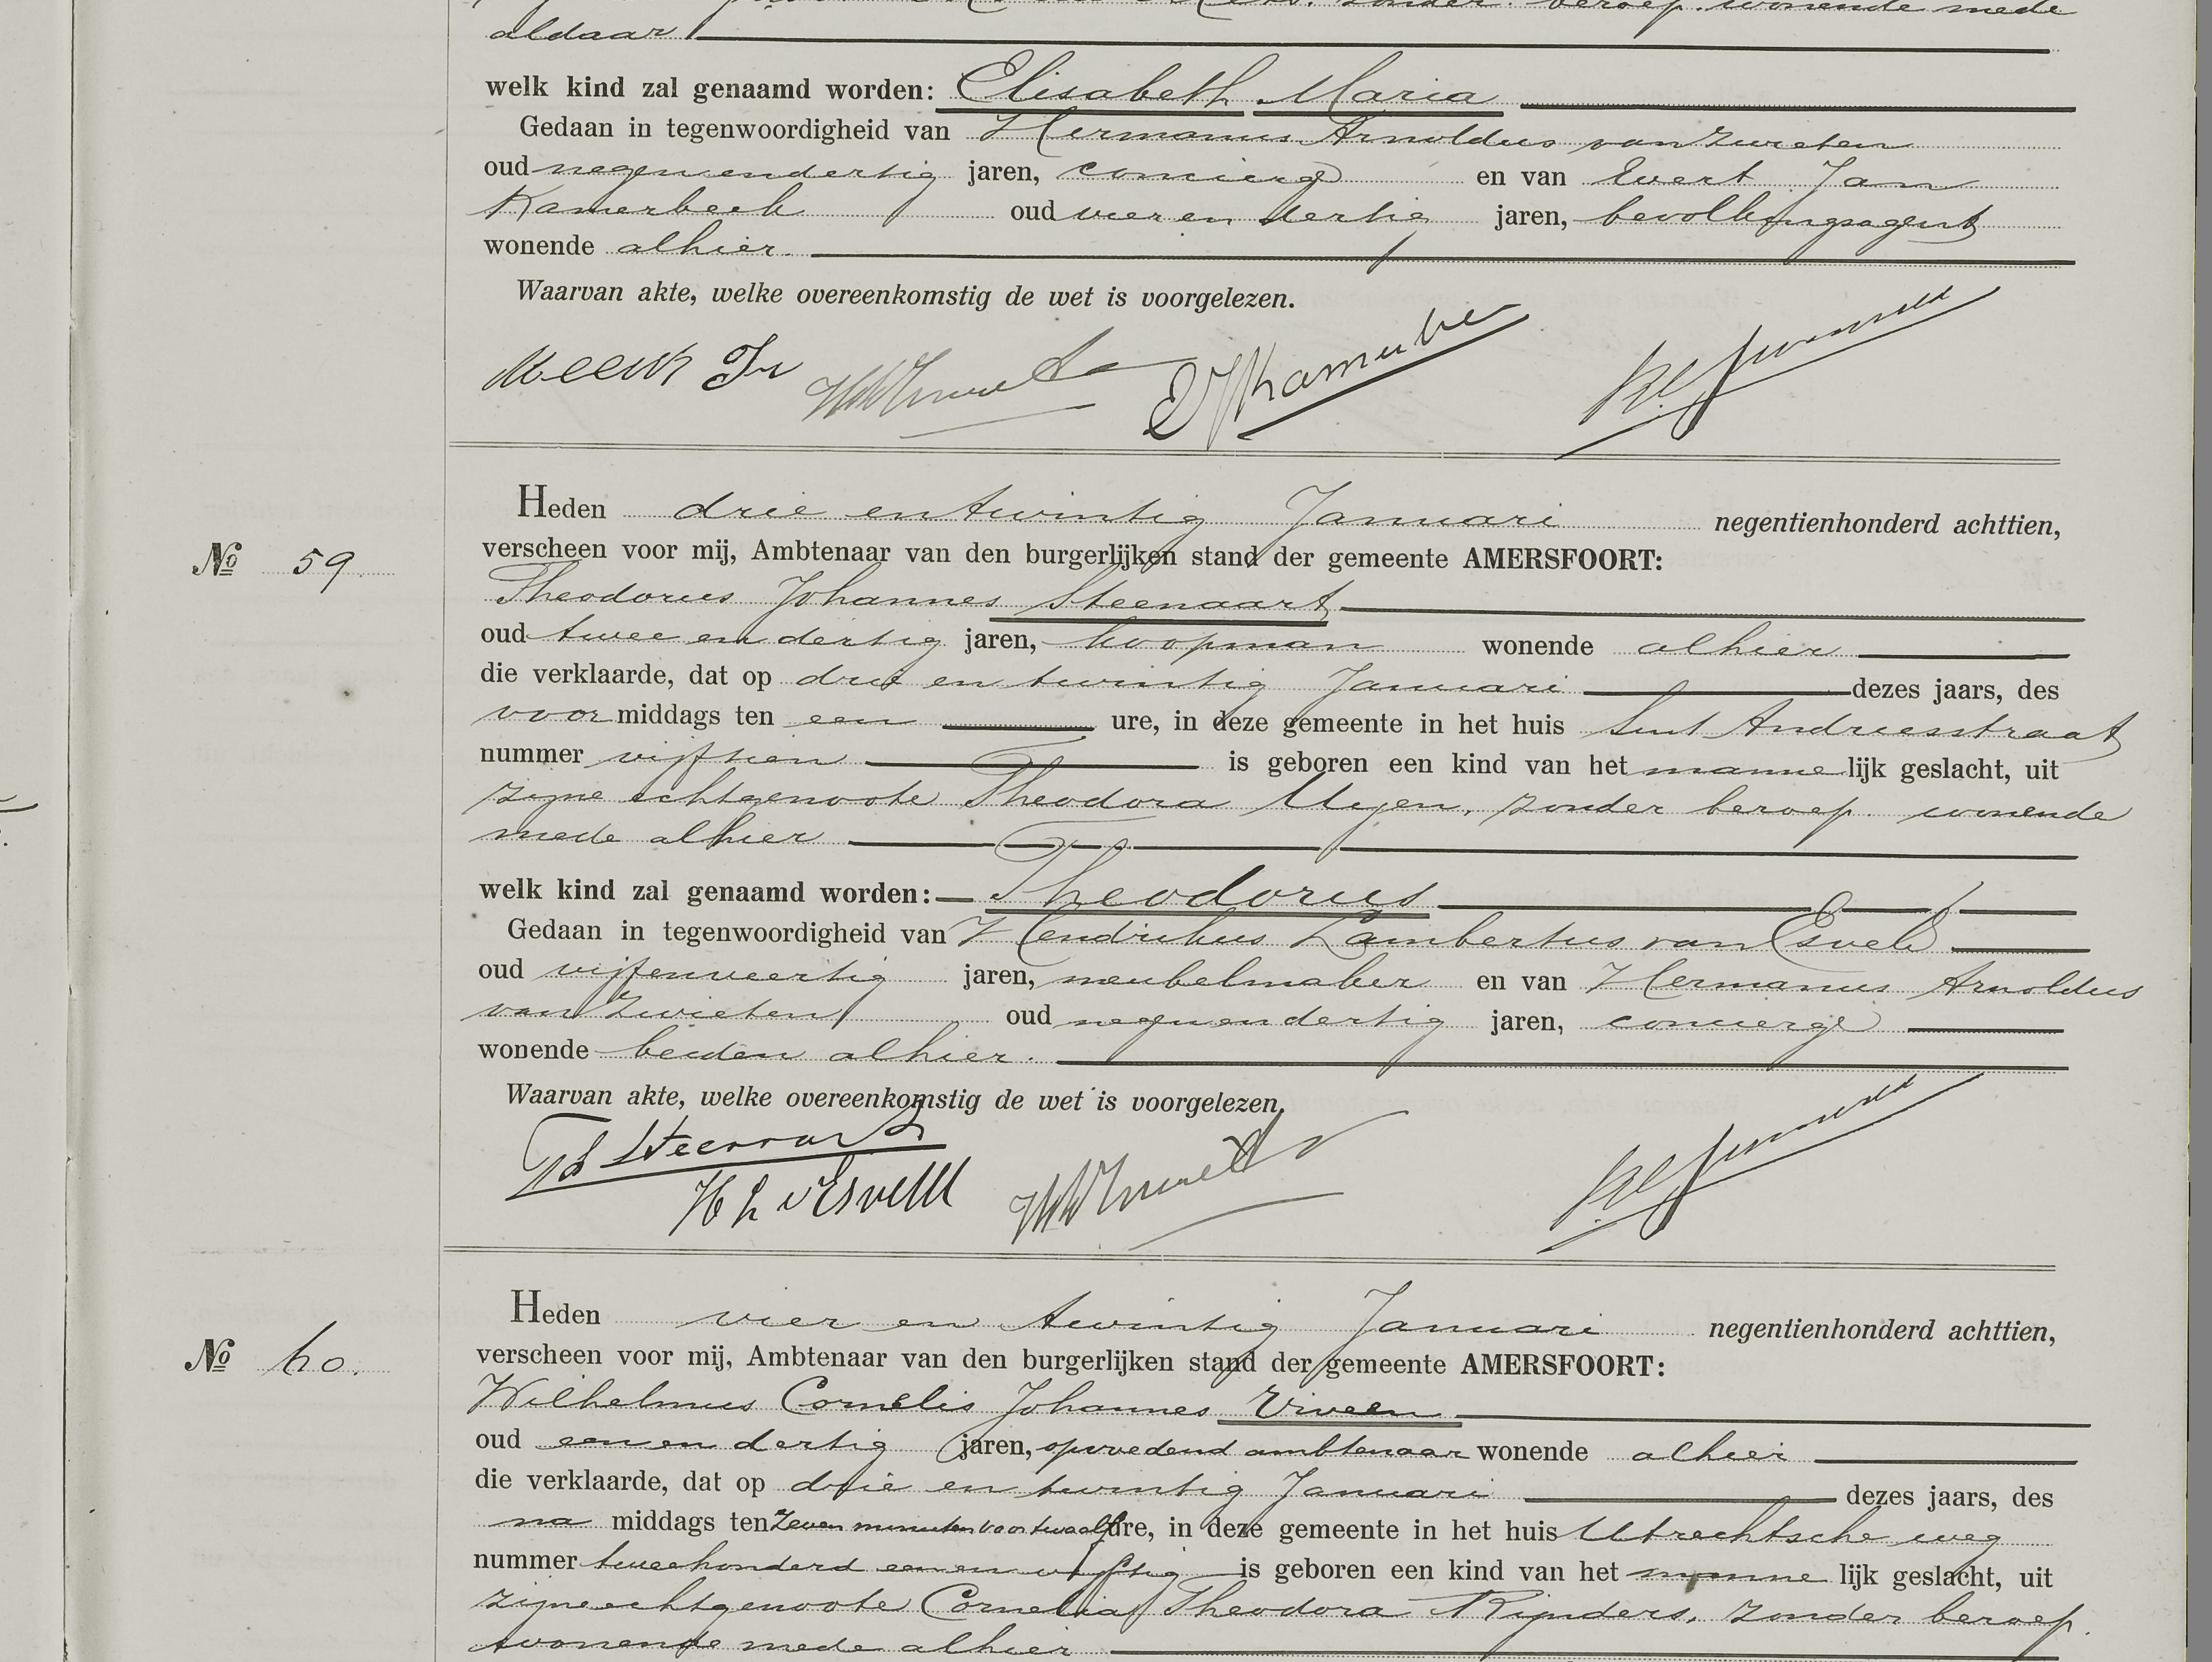 zonder beroep. wonende mede
aldaar
welk kind zal genaamd worden: Elisabeth Maria
Gedaan in tegenwoordigheid van Hermanus Arnoldus van Zwieten
oud negenendertig jaren, concierge en van Evert Jan
Kamerbeek oud vier en dertig jaren, bevolkingsagent
wonende alhier.
Waarvan akte, welke overeenkomstig de wet is voorgelezen.
Nº 59.
Heden drie en twintig Januari negentienhonderd achttien,
verscheen voor mij, Ambtenaar van den burgerlijken stand der gemeente AMERSFOORT:
Theodorus Johannes Steenaart
oud twee en dertig jaren, koopman wonende alhier
die verklaarde, dat op drie en twintig Januari dezes jaars, des
voor middags ten een ure, in deze gemeente in het huis Sint Andriesstraat
nummer vijftien is geboren een kind van het manne lijk geslacht, uit
zijne echtgenoote Theodora zonder beroep. wonende
mede alhier
welk kind zal genaamd worden: Theodorus
Gedaan in tegenwoordigheid van Hendrikus Lambertus van Esveld
oud vijfenveertig jaren, meubelmaker en van Hermanus Arnoldus
van Zwieten oud negenendertig jaren, concierge
wonende beiden alhier.
Waarvan akte, welke overeenkomstig de wet is voorgelezen.
H L v Esveld
Nº 60.
Heden vier en twintig Januari negentienhonderd achttien,
verscheen voor mij, Ambtenaar van den burgerlijken stand der gemeente AMERSFOORT:
Wilhelmus Cornelis Johannes Viveen
oud een en dertig jaren, sporedend ambtenaar wonende alhier
die verklaarde, dat op drie en twintig Januari dezes jaars, des
na middags ten zeven minuten voor twaalf ure, in deze gemeente in het huis Utrechtsche weg
nummer tweehonderd een en vijftig is geboren een kind van het manne lijk geslacht, uit
zijne echtgenoote Cornelia Theodora Rijnders, zonder beroep.
wonende mede alhier